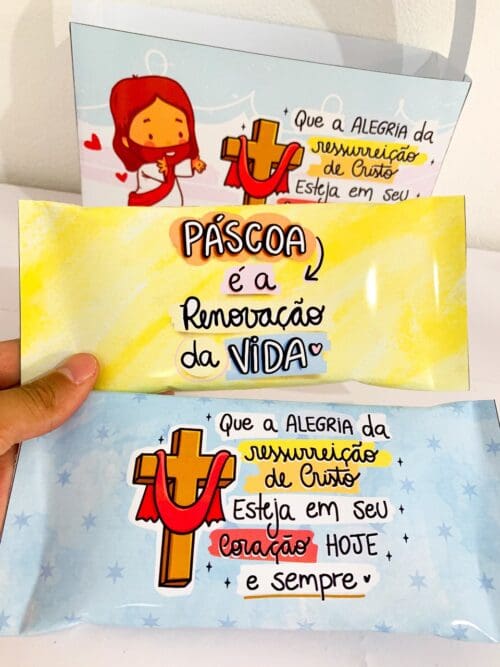 Que a ALEGRIA da
ressurreição
de Cristo
Esteja em seu
PÁSCOA
é a
Renovação
da VIDA
Que a ALEGRIA da
ressurreição
de Cristo
Esteja em seu
Coração HOJE
e sempre